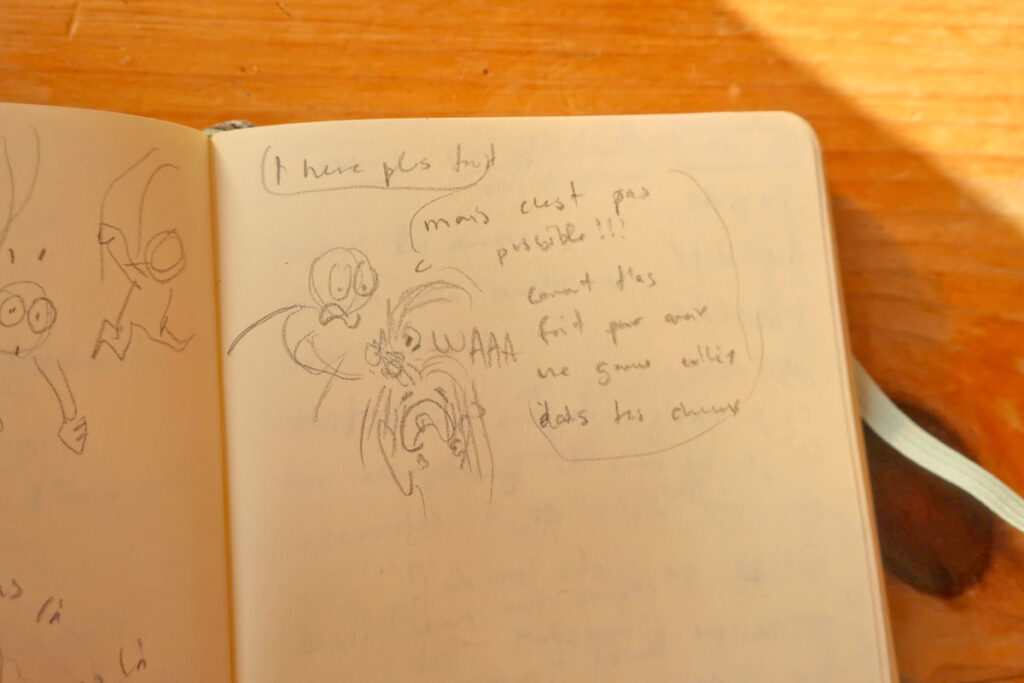 1 heure plus tard
mais c'est pas
possible!!!
comment t'as
fait pour avoir
WAAA
une gomme collée
dans tes cheveux
là
là